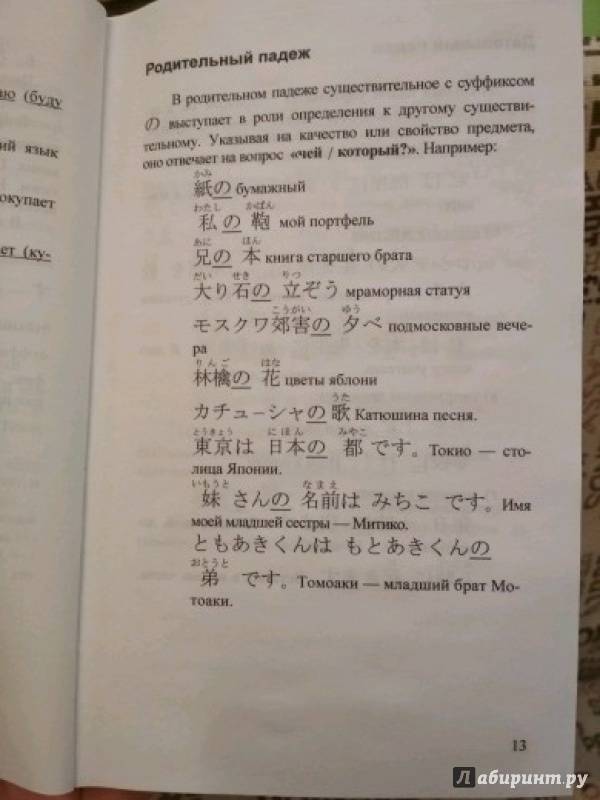 ю (буду
ий язык
окупает
ет (ку-
Родительный падеж
В родительном падеже существительное с суффиксом
の выступает в роли определения к другому существи-
тельному. Указывая на качество или свойство предмета,
оно отвечает на вопрос «чей / который?». Например:
かみ
紙の бумажный
わたし かばん
私の 鞄 мой портфель
あに ほん
兄の 本 книга старшего брата
だい せき りつ
大り石の 立ぞう мраморная статуя
こうがい ゆう
モスクワ郊害の 夕べ подмосковные вече-
ра
りんご はな
林檎の 花 цветы яблони
うた
カチューシャの 歌 Катюшина песня.
とうきょう にほん みやこ
東京は 日本の 都 です。Токио — сто-
лица Японии.
いもうと なまえ
妹 さんの 名前は みちこ です。Имя
моей младшей сестры — Митико.
ともあきくんは もとあきくんの
おとうと
弟 です。Томоаки — младший брат Мо-
тоаки.
13
Лабиринт.ру